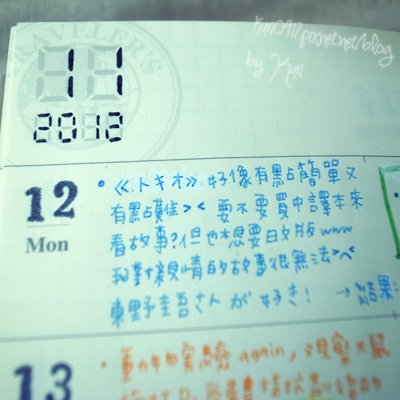 Kuri0917.pixnet.net/blog
by Kuri
TRAVELER'S
11
2012
12
Mon
•《トキオ》好像有點簡單又
有點難>< 要不要買中譯本來
看故事?但也想要日文版www
我對親情的故事很無法>^<
東野圭吾さんが好き! → 結果:
13
again,